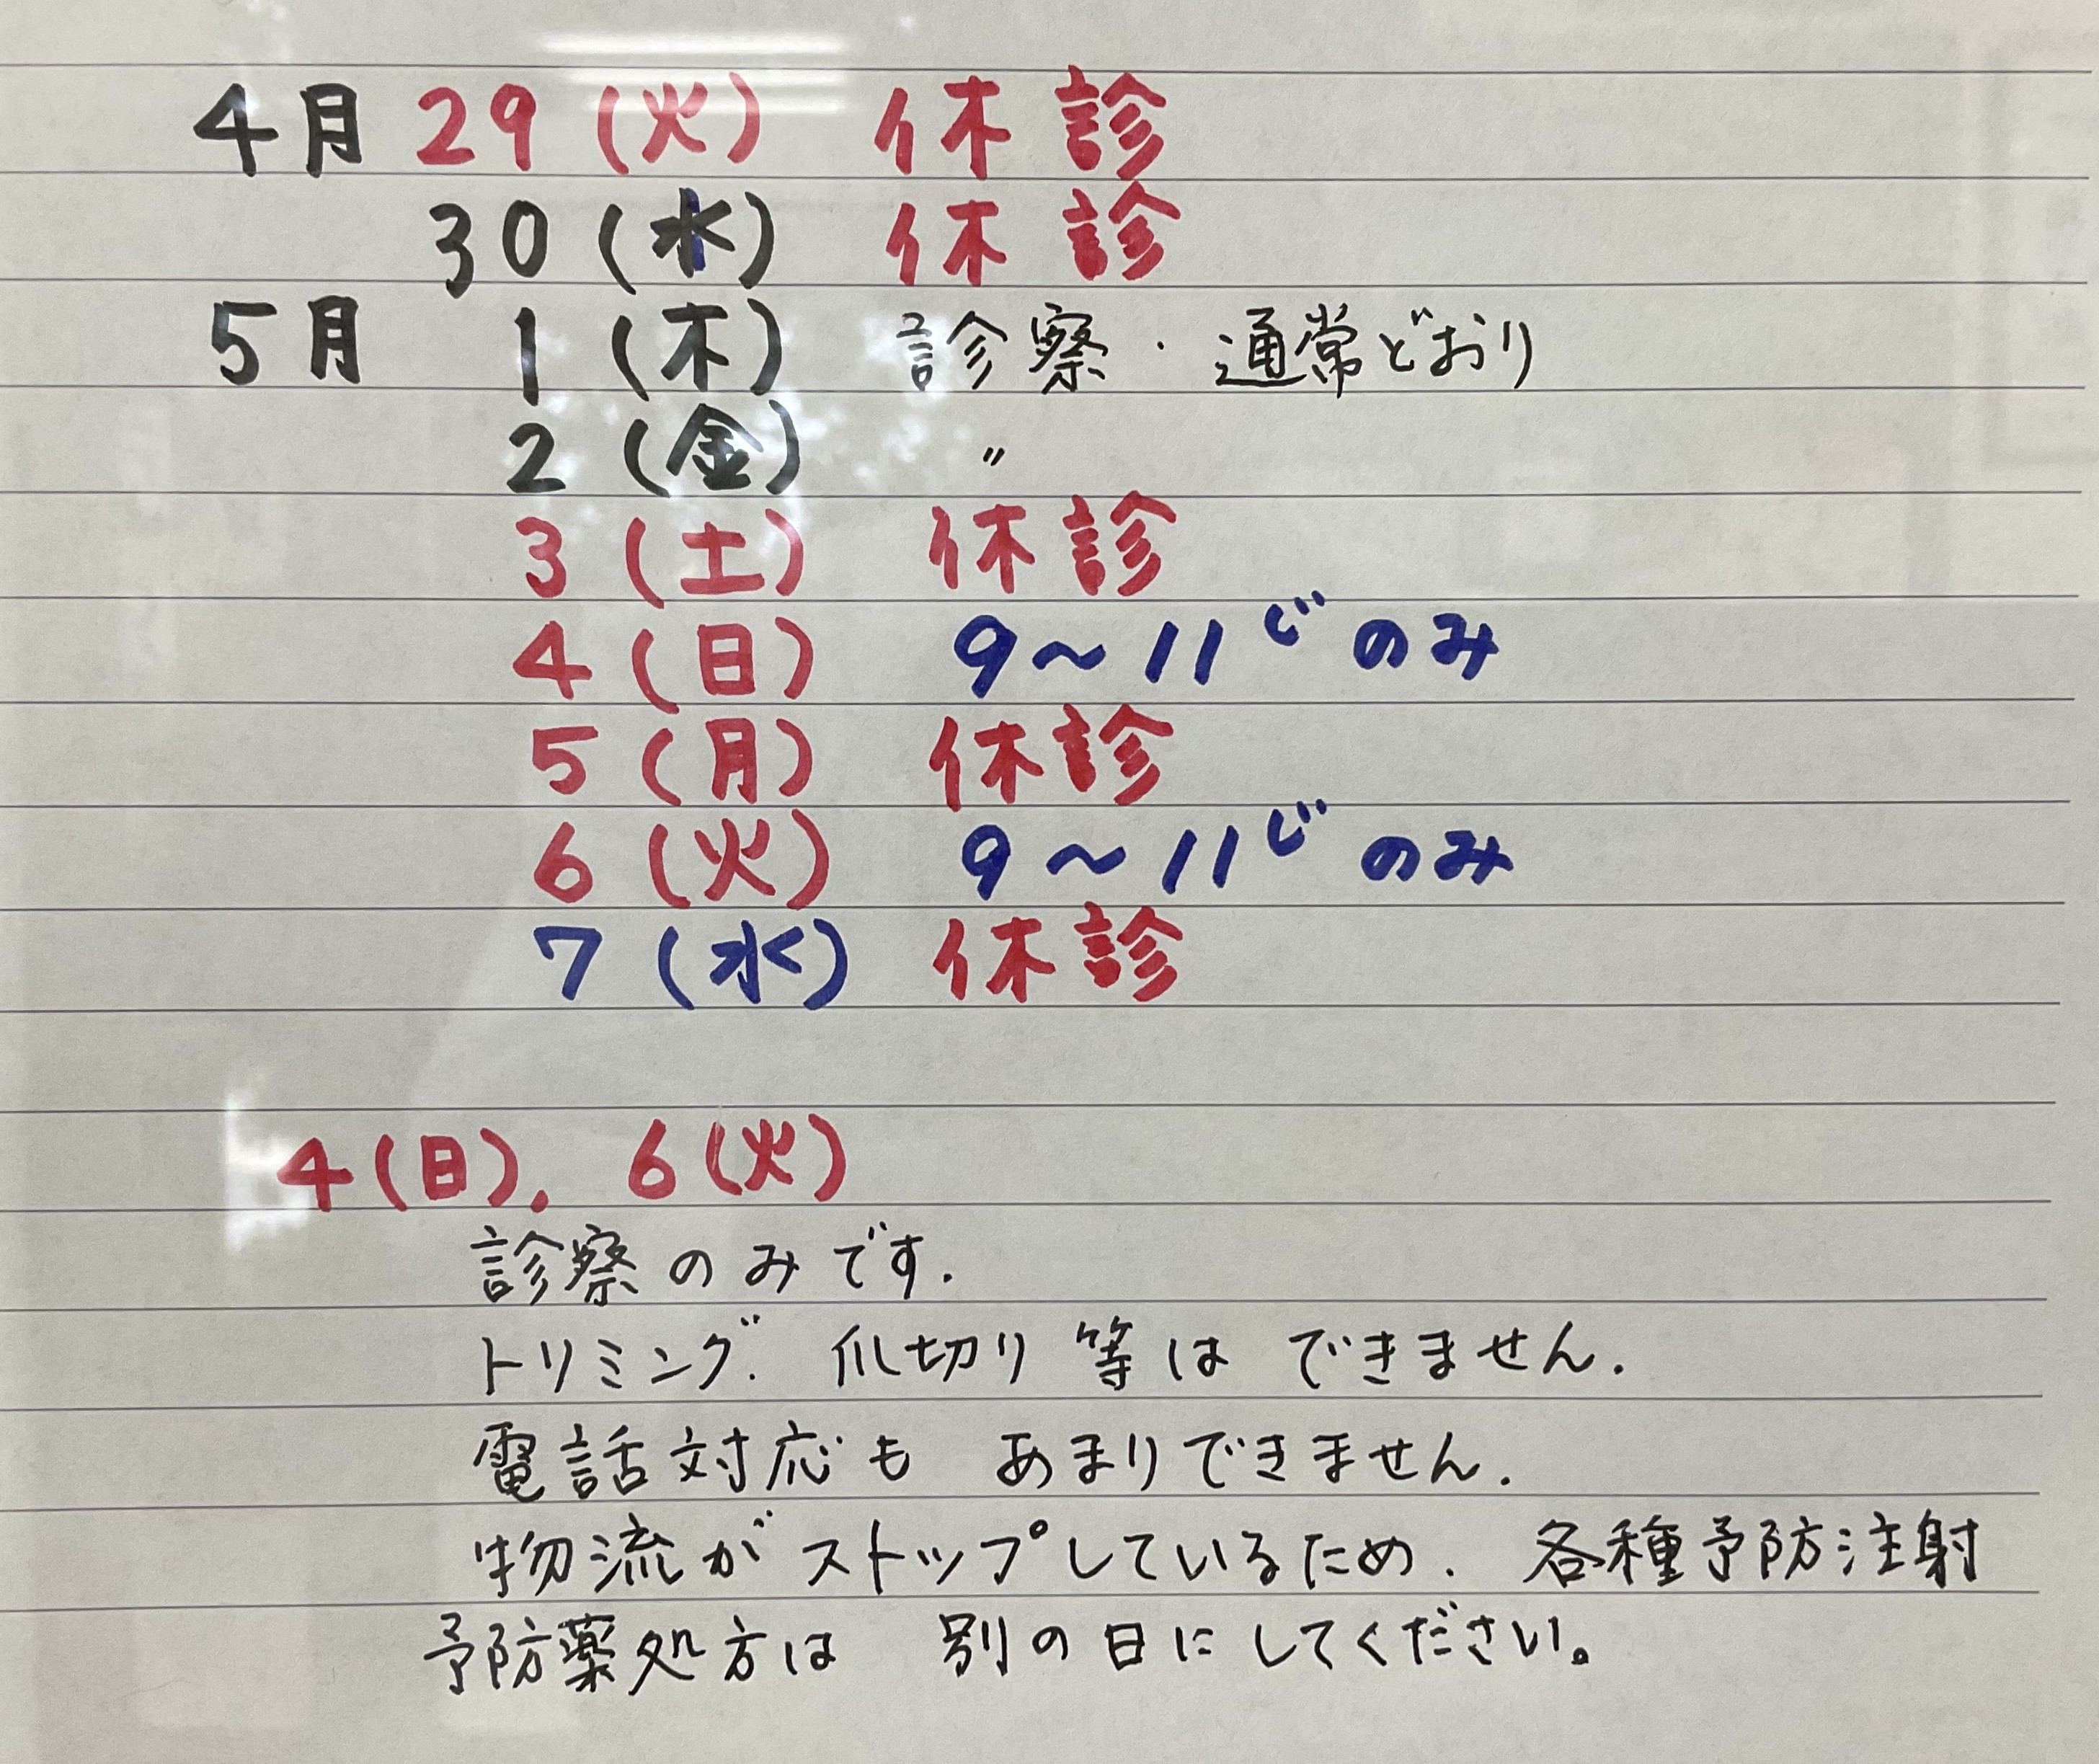 4月 29 (火) 休診
30 (水) 休診
5月 1 (木) 診察・通常どおり
2 (金) 〃
3 (土) 休診
4 (日) 9〜11じのみ
5 (月) 休診
6 (火) 9〜11じのみ
7 (水) 休診
4(日)、6(火)
診察のみです.
トリミング. 爪切り等は できません.
電話対応も あまりできません.
物流がストップしているため. 各種予防注射
予防薬処方は 別の日にしてください。